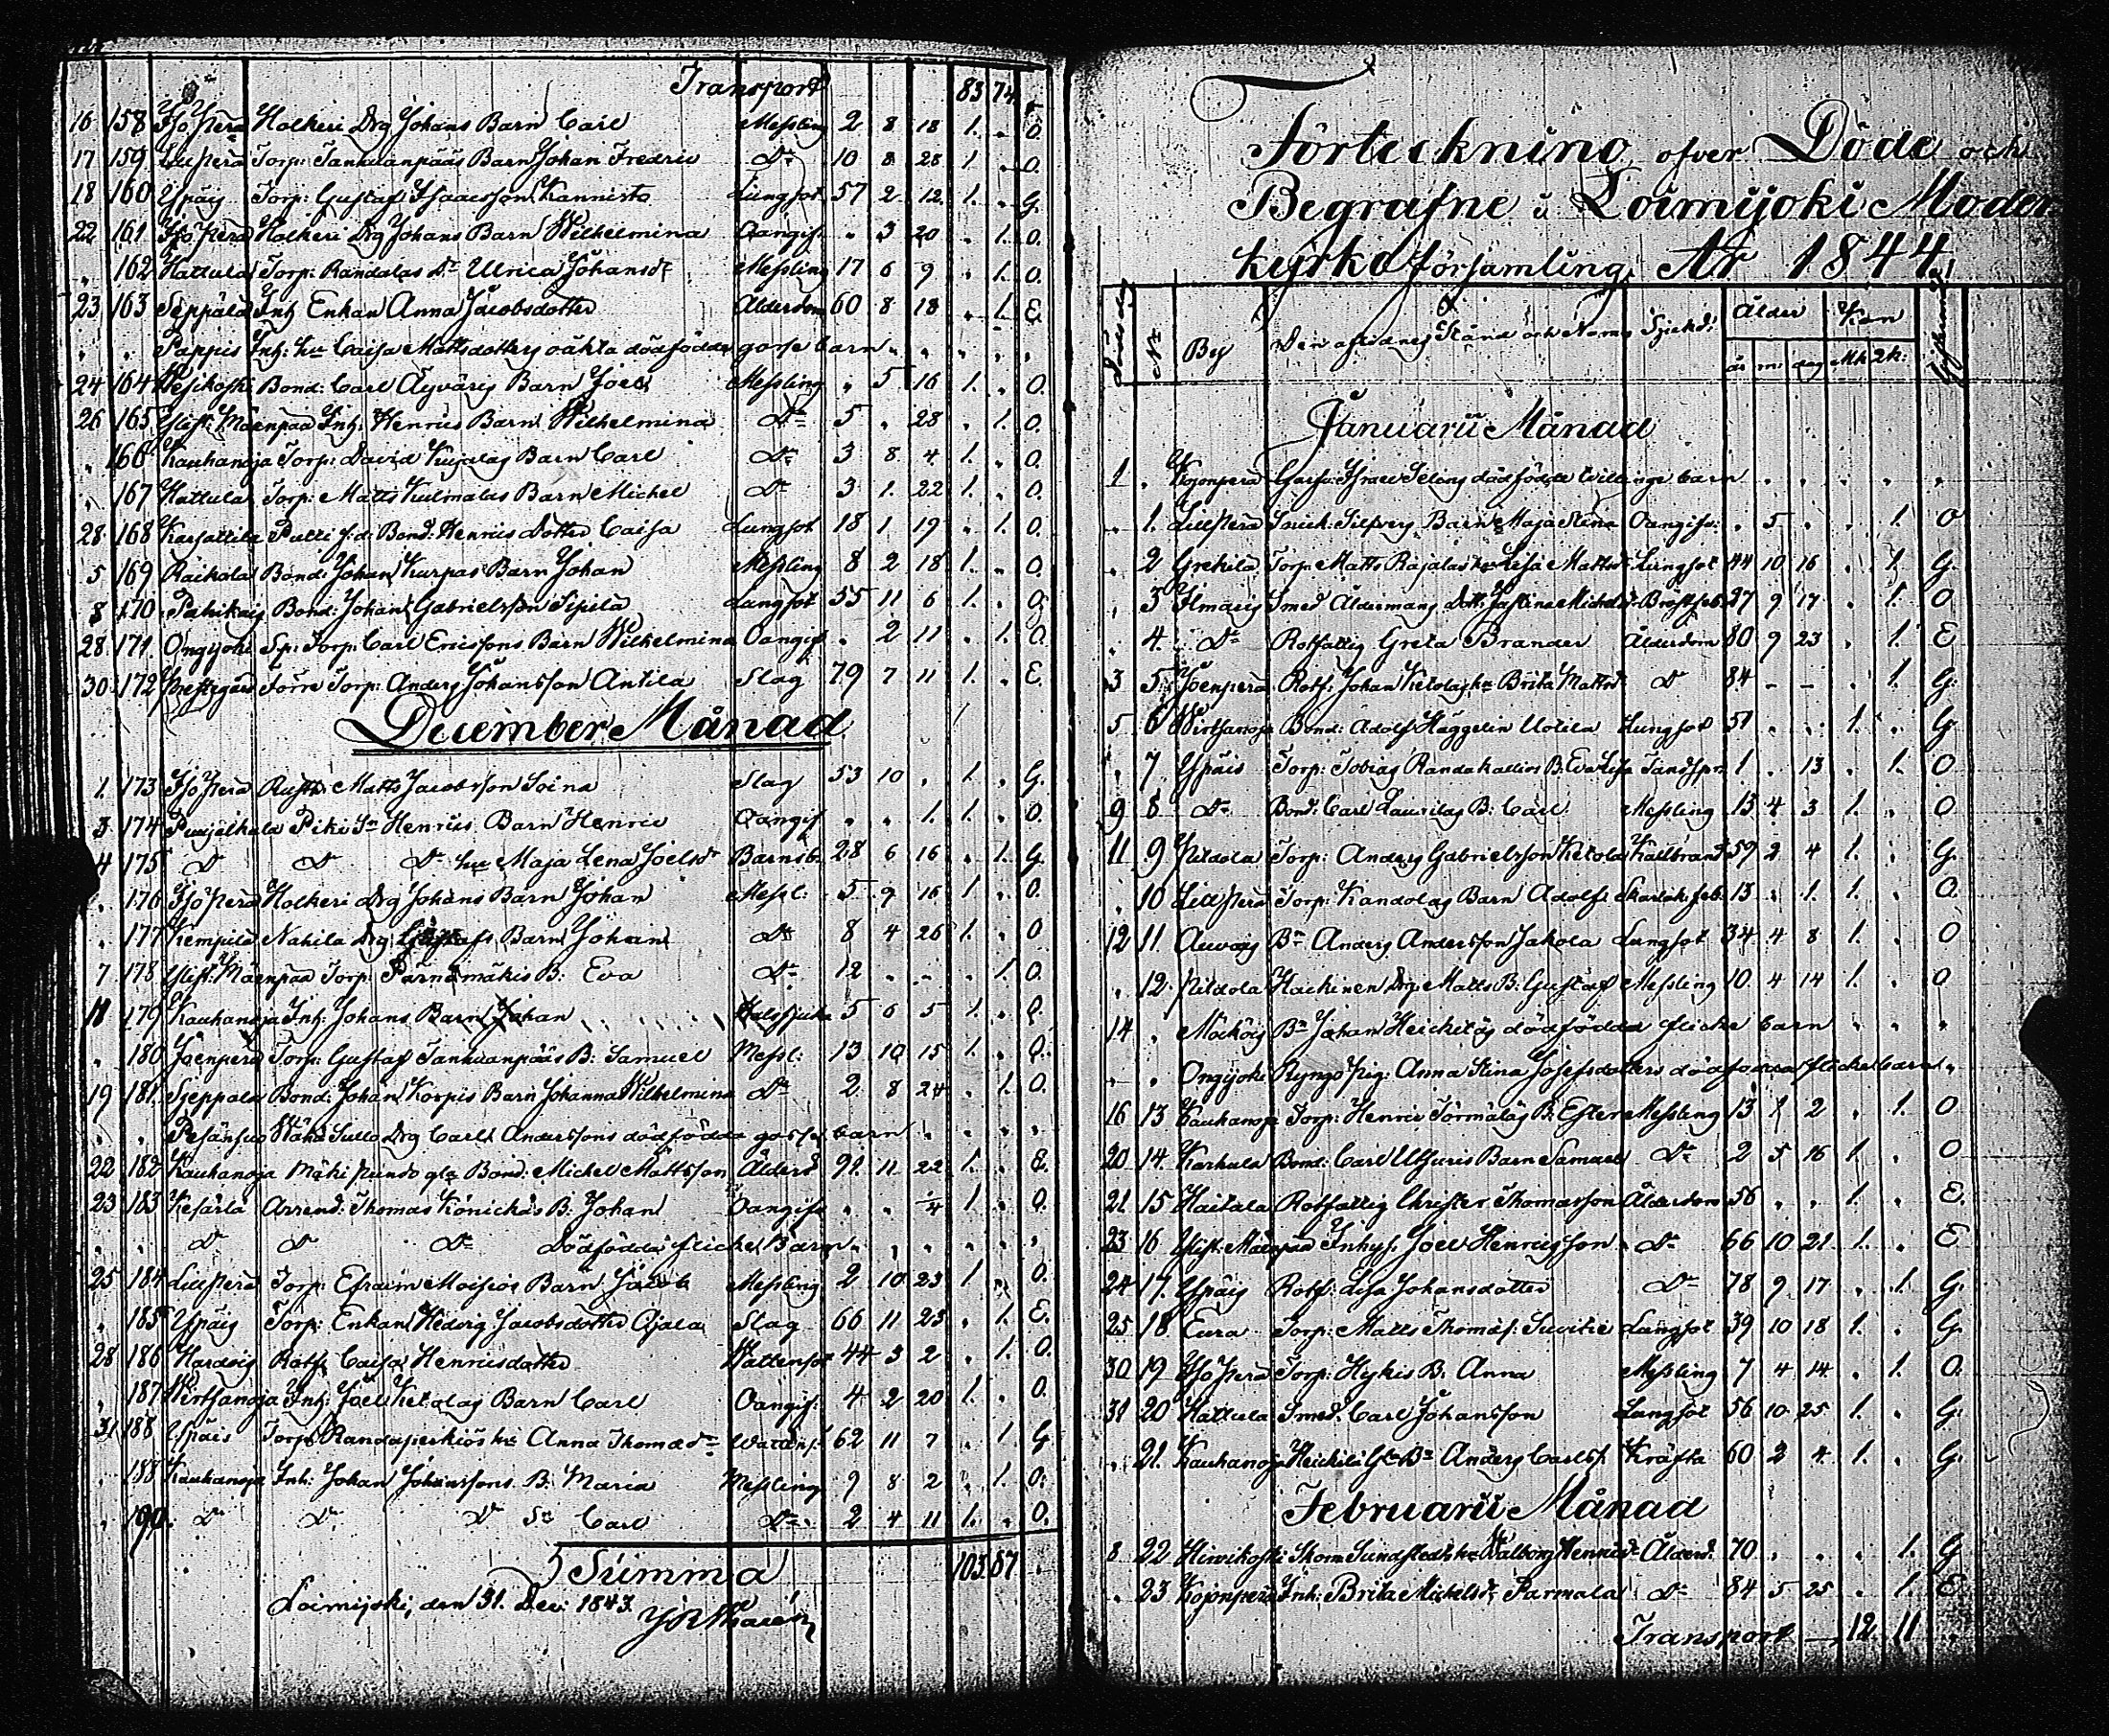 Transport 83 74
16 158 Isoperä Holkeri Drg Johans Barn Carl Messling 2 8 18 1. . O.
17 159 Lillperä Torp: Tankuanpääs Barn Johan Fredric Do 10 8 28 1 . O.
18 160 Ypäis Torp: Gustaf Isaacsson Kannisto Lungsot 57 2 12. 1. . G.
22 161 Isoperä Holkeri Drg Johans Barn Wilhelmina Oangif. . 3 20 . 1. O.
. 162 Hattula Torp: Randalas Dr Ulrica Johansdr Messling 17 6 9 . 1. O.
23 163 Seppälä Inh Enkan Anna Jacobsdotter Ålderdom 60 8 18 . 1. E.
. . Pappis Inh: hu Caisa Mattsdotters oäkta dödfödda gosse barn . . . . .
24 164 Wesikoski Bond: Carl Äyväris Barn Joel Messling . 5 16 1. . O.
26 165 Ylist: Mäenpää Inh: Henrics Barn Wilhelmina Do 5 . 28 . 1. O.
. 166 Kauhanoja Torp: David Kujalas Barn Carl Do 3 8 4 1. . O.
. 167 Hattula Torp: Matts Kulmalas Barn Michel Do 3 1. 22 1. . O.
28 168 Karsattila Patti f.d. Bond: Henrics Dotter Caisa Lungsot 18 1 19 . 1. O.
5 169 Raikola Bond: Johan Kurpas Barn Johan Messling 8 2 18 1. . O.
8 170 Pahikais Bond: Johan Gabrielsson Sipilä Lungsot 55 11 6 1. . G.
28 171. Ongijoki Sp: Torp: Carl Ericssons Barn Wilhelmina Oangif . 2 11 . 1. O.
30 172 Prestegård Torre Torp: Anders Johansson Antila Slag 79 7 11 1. . E.
December Månad
1. 173 Isoperä Matts Jacobsson Soina Slag 53 10 . 1. . G.
3 174 Puujalkala Piki Sn Henrics Barn Henric Oangif . . 1. 1. . O.
4 175 Do Do Do hu Maja Lena Joelsdr Barnsb. 28 6 16 . 1. G.
. 176 Isoperä Holkeri Drg Johans Barn Johan Messl: 5 9 16 1. . O.
. 177 Kempilä Nahila Drg Gustafs Barn Johan Do 8 4 26 1. . O
7 178 Ylist: Mäenpää Torp: Pärnämäkis B: Eva Do 12 . . . 1. O.
11 179 Kauhanoja Inh: Johans Barn Johan Halssjuka 5 6 5 1. . O.
. 180 Joenperä Torp: Gustaf Tankuanpääs B: Samuel Messl: 13 10 15 1. . O.
19 181. Sjeppälä Bond: Johan Korpis Barn Johanna Wilhelmina Do 2 8 24 . 1. O.
. . Pesänsuo Wähä Sullo Drg Carl Anderssons dödfödda gosse barn . . . .
22 182 Kauhanoja Mäki pundo gla Bond: Michel Mattsson Ålderd 91. 11 22 1. . E.
23 183 Kesärla Arrend: Thomas Könickäs B: Johan Oangif . . 1/4 1. . O.
. . Do Do Do Dödfödda flicke Barn . . . . .
25 184 Lillperä Torp: Efraim Moisios Barn Jacob Messling 2 10 23 1. . O.
. 185 Ypäis Torp: Enkan Hedvig Jacobsdotter Ojala Slag 66 11 23 . 1. E.
28 186 Hardois Rotf: Caisa Henricsdotter Wattensot 44 3 2 . 1. O.
. 187 Wirtsanoja Inh: Joel Ketolas Barn Carl Oangif. 4 2 20 1. . O.
31 188 Ypäis Torp: Randaperkiös hu Anna Thomasdr Wattens: 62 11 7 . 1 G
. 188 Kauhanoja Inh: Johan Johanssons B: Maria Messling 9 8 2 . 1. O.
. 190. Do Do Do Sn Carl Do 2 4 11 1. . O.
Summa 103 87
Loimijoki, den 31. Dec: 1843.
Förteckning öfver Döde och
Begrafne i Loimijoki Moder
kyrko församling År 1844.
No By Den aflidnes Stånd och Namn Sjukd: Ålder Kön
år m: dag Mk 2k:
Januarii Månad
1 . Kojonperä Israel Selins dödfödda tvillinge barn . . . . . .
. 1. Lillperä Silfvers Barn Maja Stina Oangif: . 5 . . 1. O
. 2 Grekilä Torp: Matts Rajalas hu Lisa Mattsdr Lungsot 44 10 16 . 1. G.
. 3 Ilmaris Smed Åldermans Dott: Justina Michelsdr Bröstfeb. 27 9 17 . 1. O
. 4. Do Rotfattig Greta Brander Ålderdom 80 9 23 . 1. E
3 5. Joenperä Rotf: Johan Ketolas hu Brita Mattsdr Do 84 – – . 1. G.
5 6 Wirtsanoja Bond: Adolf Häggelin Uotila Lungsot 51 . . 1. . G
. 7 Ypäis Torp: Tobias Randakallios B: Eva Lisa Tandspr: 1 . 13 . 1. O
9 8 Do Bond: Carl Laurilas B: Carl Messling 13 4 3 1. . O
11 9 Pildola Torp: Anders Gabrielsson Ketola Kallbrand 59 2 4 1. . G.
. 10 Lillperä Torp: Kandolas Barn Adolf Skarlak: feb: 13 . 1. 1. . O.
12 11. Auvais Bn Anders Andersson Jakola Lungsot 34 4 8 1. . O
. 12 Pildola Hackinen Drg: Matts B: Gustaf Messling 10 4 14 1. . O
14 . Mäkäis Bn Johan Heickiläs dödfödda flicke barn . . .
. . Ongijoki Ryngo Pig: Anna Stina Josefsdotters dödfödda flicke barn .
16 13 Kauhanoja Torp: Henric Törmäläs B: Ester Messling 13 1 2 . 1. O
20 14. Karhula Bond: Carl Utturis Barn Samuel Do 2 5 16 1. . O
21 15 Haitala Rotfattig Christer Thomasson Ålderdom 56 . . 1. . E.
23 16 Ylist: Mäenpää Inhys: Joel Henricsson Do 66 10 21. 1. . E
24 17. Ypäis Rotf: Lisa Johansdotter Do 78 9 17 . 1. G.
25 18 Eura Torp: Matts Thomas: Suvitie Lungsot 39 10 18 1. . G.
30 19 Isoperä Torp: Hykis B: Anna Messling 7 4 14 . 1. O.
31 20 Hattula Smed: Carl Johansson Lungsot 56 10 25 1. . G.
. 21. Kauhanoja Heickilä Gla Bn Anders Carlss. Kräfta 60 2 4 1. . G.
Februarii Månad
8 22 Hirvikoski Skom: Sundstedts hu Walborg Henricsdr Ålderd: 70 . . . 1. G
. 23 Kojonperä Inh: Brita Michelsdr Parmala Do 84 5 25 . 1. E.
Transport — 12. 11
Loimijoki, den 31. Dec: 1843.